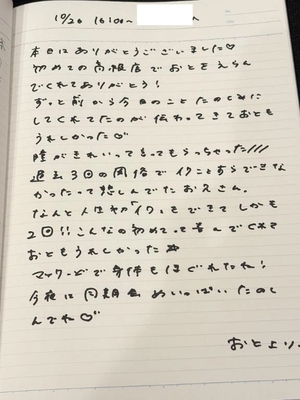 10/26 16:00~ へ
本日はありがとうございました♡
初めての高級店でおとをえらん
でくれてありがとう!
ずっと前から今日のことたのしみに
してくれてたのが伝わってきておとも
うれしかった♡
瞳がきれいって言ってもらっちゃった///
過去3回の関係でイクことすらできな
かったって悲しんでたおえさん。
なんと人生初「イク」をできてしかも
2回!!こんなの初めてって喜んでくれて
おともうれしかった
マットなどで身体もほぐれたね!
今夜は同期会めいっぱいたのし
んでね♡
おとより